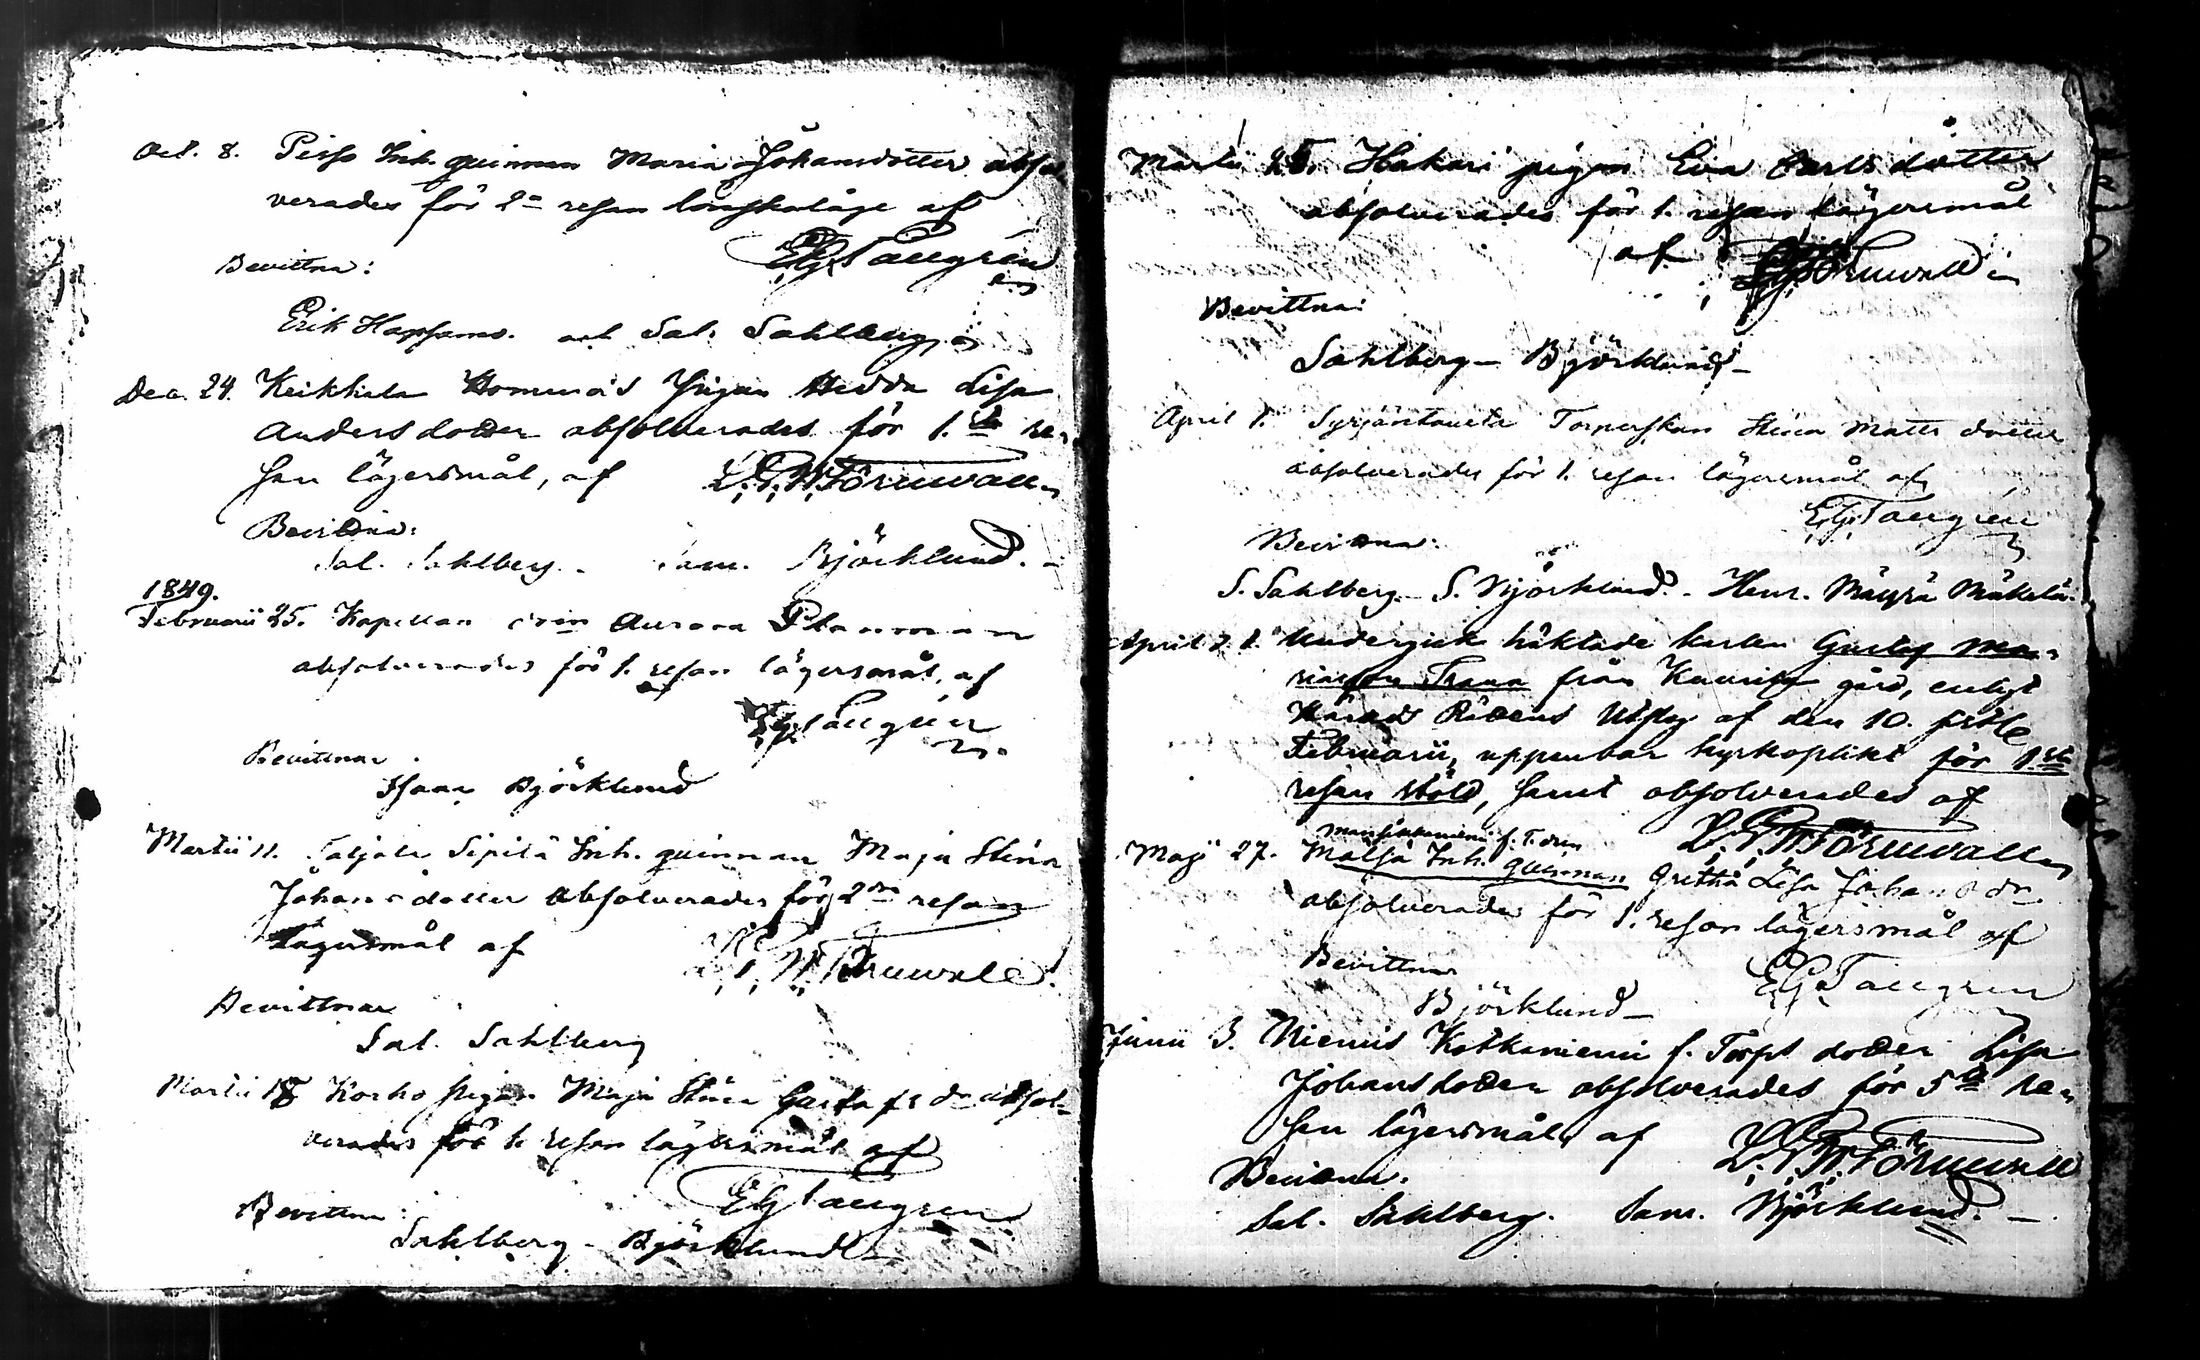 Oct. 8. Peiso Inh. quinnan Maria Johansdotter absol-
verades för 2a resan lönskaläge af
EG Tallgrén
Bevittna:
Erik och Sal. Sahlberg
Dec. 24. Keikkila Pigan Hedda Lisa
Andersdotter absolverades för 1.sta re-
san lägersmål, af L.P.W. Törnwall
Bevittna:
Sal. Sahlberg. Sam. Björklund.
1849.
Februarii 25. Kapellan Aurora
absolverades för 1. resan lägersmål, af
EG Tallgrén
Bevittnar
Isaac Björklund
Martii 11. Sipilä Inh. quinnan Maja Stina
Johansdotter absolverades för 2dra resan
Lägersmål af L.P.W. Törnwall.
Bevittnar
Sal. Sahlberg
Martii 18 Korho pigan Maja Stina Gustafsdr absol-
verades för 1. resan lägersmål af
EG Tallgrén
Bevittna:
Sahlberg - Björklund
Martii 25. Hakari pigan Eva Carlsdotter
absolverades för 1. resan lägersmål
af Törnwall
Bevittna:
Sahlberg - Björklund -
April 1. Syrjäntausta Torperskan Stina Mattsdotter
absolverades för 1. resan lägersmål af
E.G. Tallgrén
Bevittna:
S. Sahlberg - S. Björklund - Henr. Mäyrä Mäkelä.
April Undergick häktade karlen Gustaf Ma-
Trana från gård, enligt
Härads Rättens Utslag af den 10. sistl.
Februarii, uppenbar kyrkoplikt för 1sta
resan stöld, samt absolverades af
L.P.W. Törnwall
Maji 27. Inh. quinnan Gretha Lisa Johansdr
absolverades för 1. resan lägersmål af
EG Tallgren
Bevittnar
Björklund -
Junii 3. Niemis Kotkaniemi f. Torps dotter Lisa
Johansdotter absolverades för 5te re-
san lägersmål, af L.P.W. Törnwall
Bevittna.
Sal. Sahlberg. Sam. Björklund. -